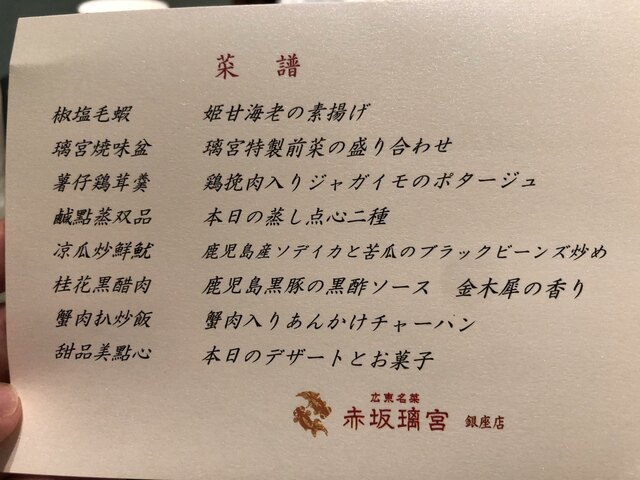 菜譜
椒塩毛蝦 姫甘海老の素揚げ
璃宮焼味盆 璃宮特製前菜の盛り合わせ
薯仔鶏茸羹 鶏挽肉入りジャガイモのポタージュ
鹹點蒸双品 本日の蒸し点心二種
凉瓜炒鮮魷 鹿児島産ソデイカと苦瓜のブラックビーンズ炒め
桂花黒醋肉 鹿児島黒豚の黒酢ソース 金木犀の香り
蟹肉扒炒飯 蟹肉入りあんかけチャーハン
甜品美點心 本日のデザートとお菓子
広東名菜
赤坂璃宮 銀座店